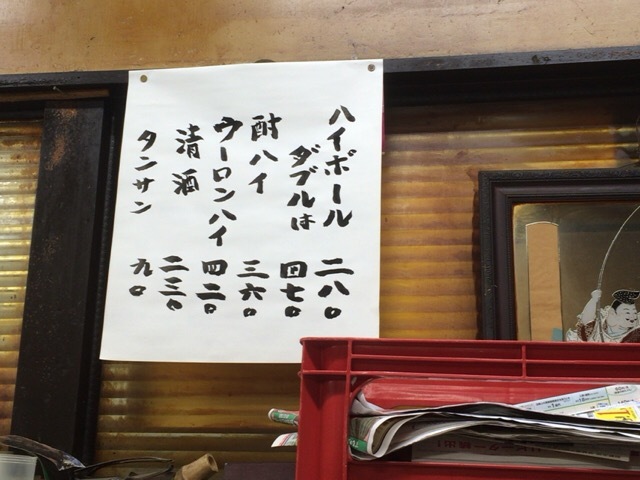 ハイボール 二八〇
ダブルは 四七〇
酎ハイ 三六〇
ウーロンハイ 四二〇
清酒 二三〇
タンサン 九〇